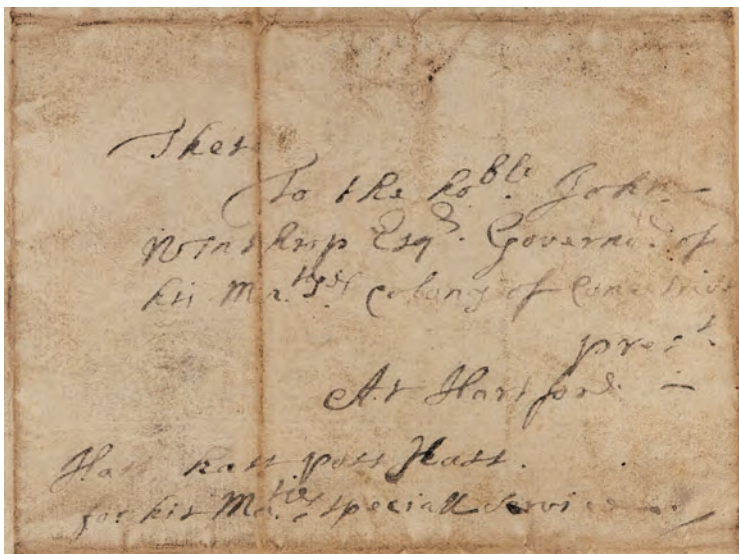 These
To the ho:ble John
Winthrop Esqr. Governor. of
his Ma:ties Colony of
prest.
At Hartford. —
Hast hast post Hast.
for his Ma:ties speciall service